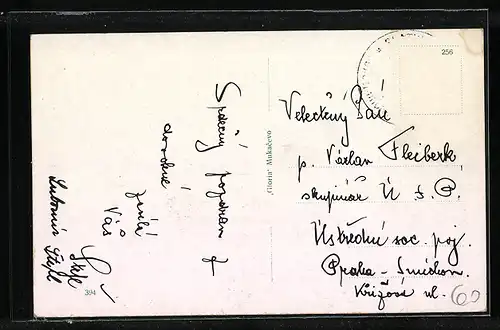 Srdečný pozdrav z
dovolené
zasílá
Vás
Lubomír
394
„Gloria" Mukačevo
256
Velectěný Pán
p. Václav Fleiberk,
skupinář Ú. S. P.
Ústřední soc. poj.
Praha - Smíchov.
Křížová ul.
60